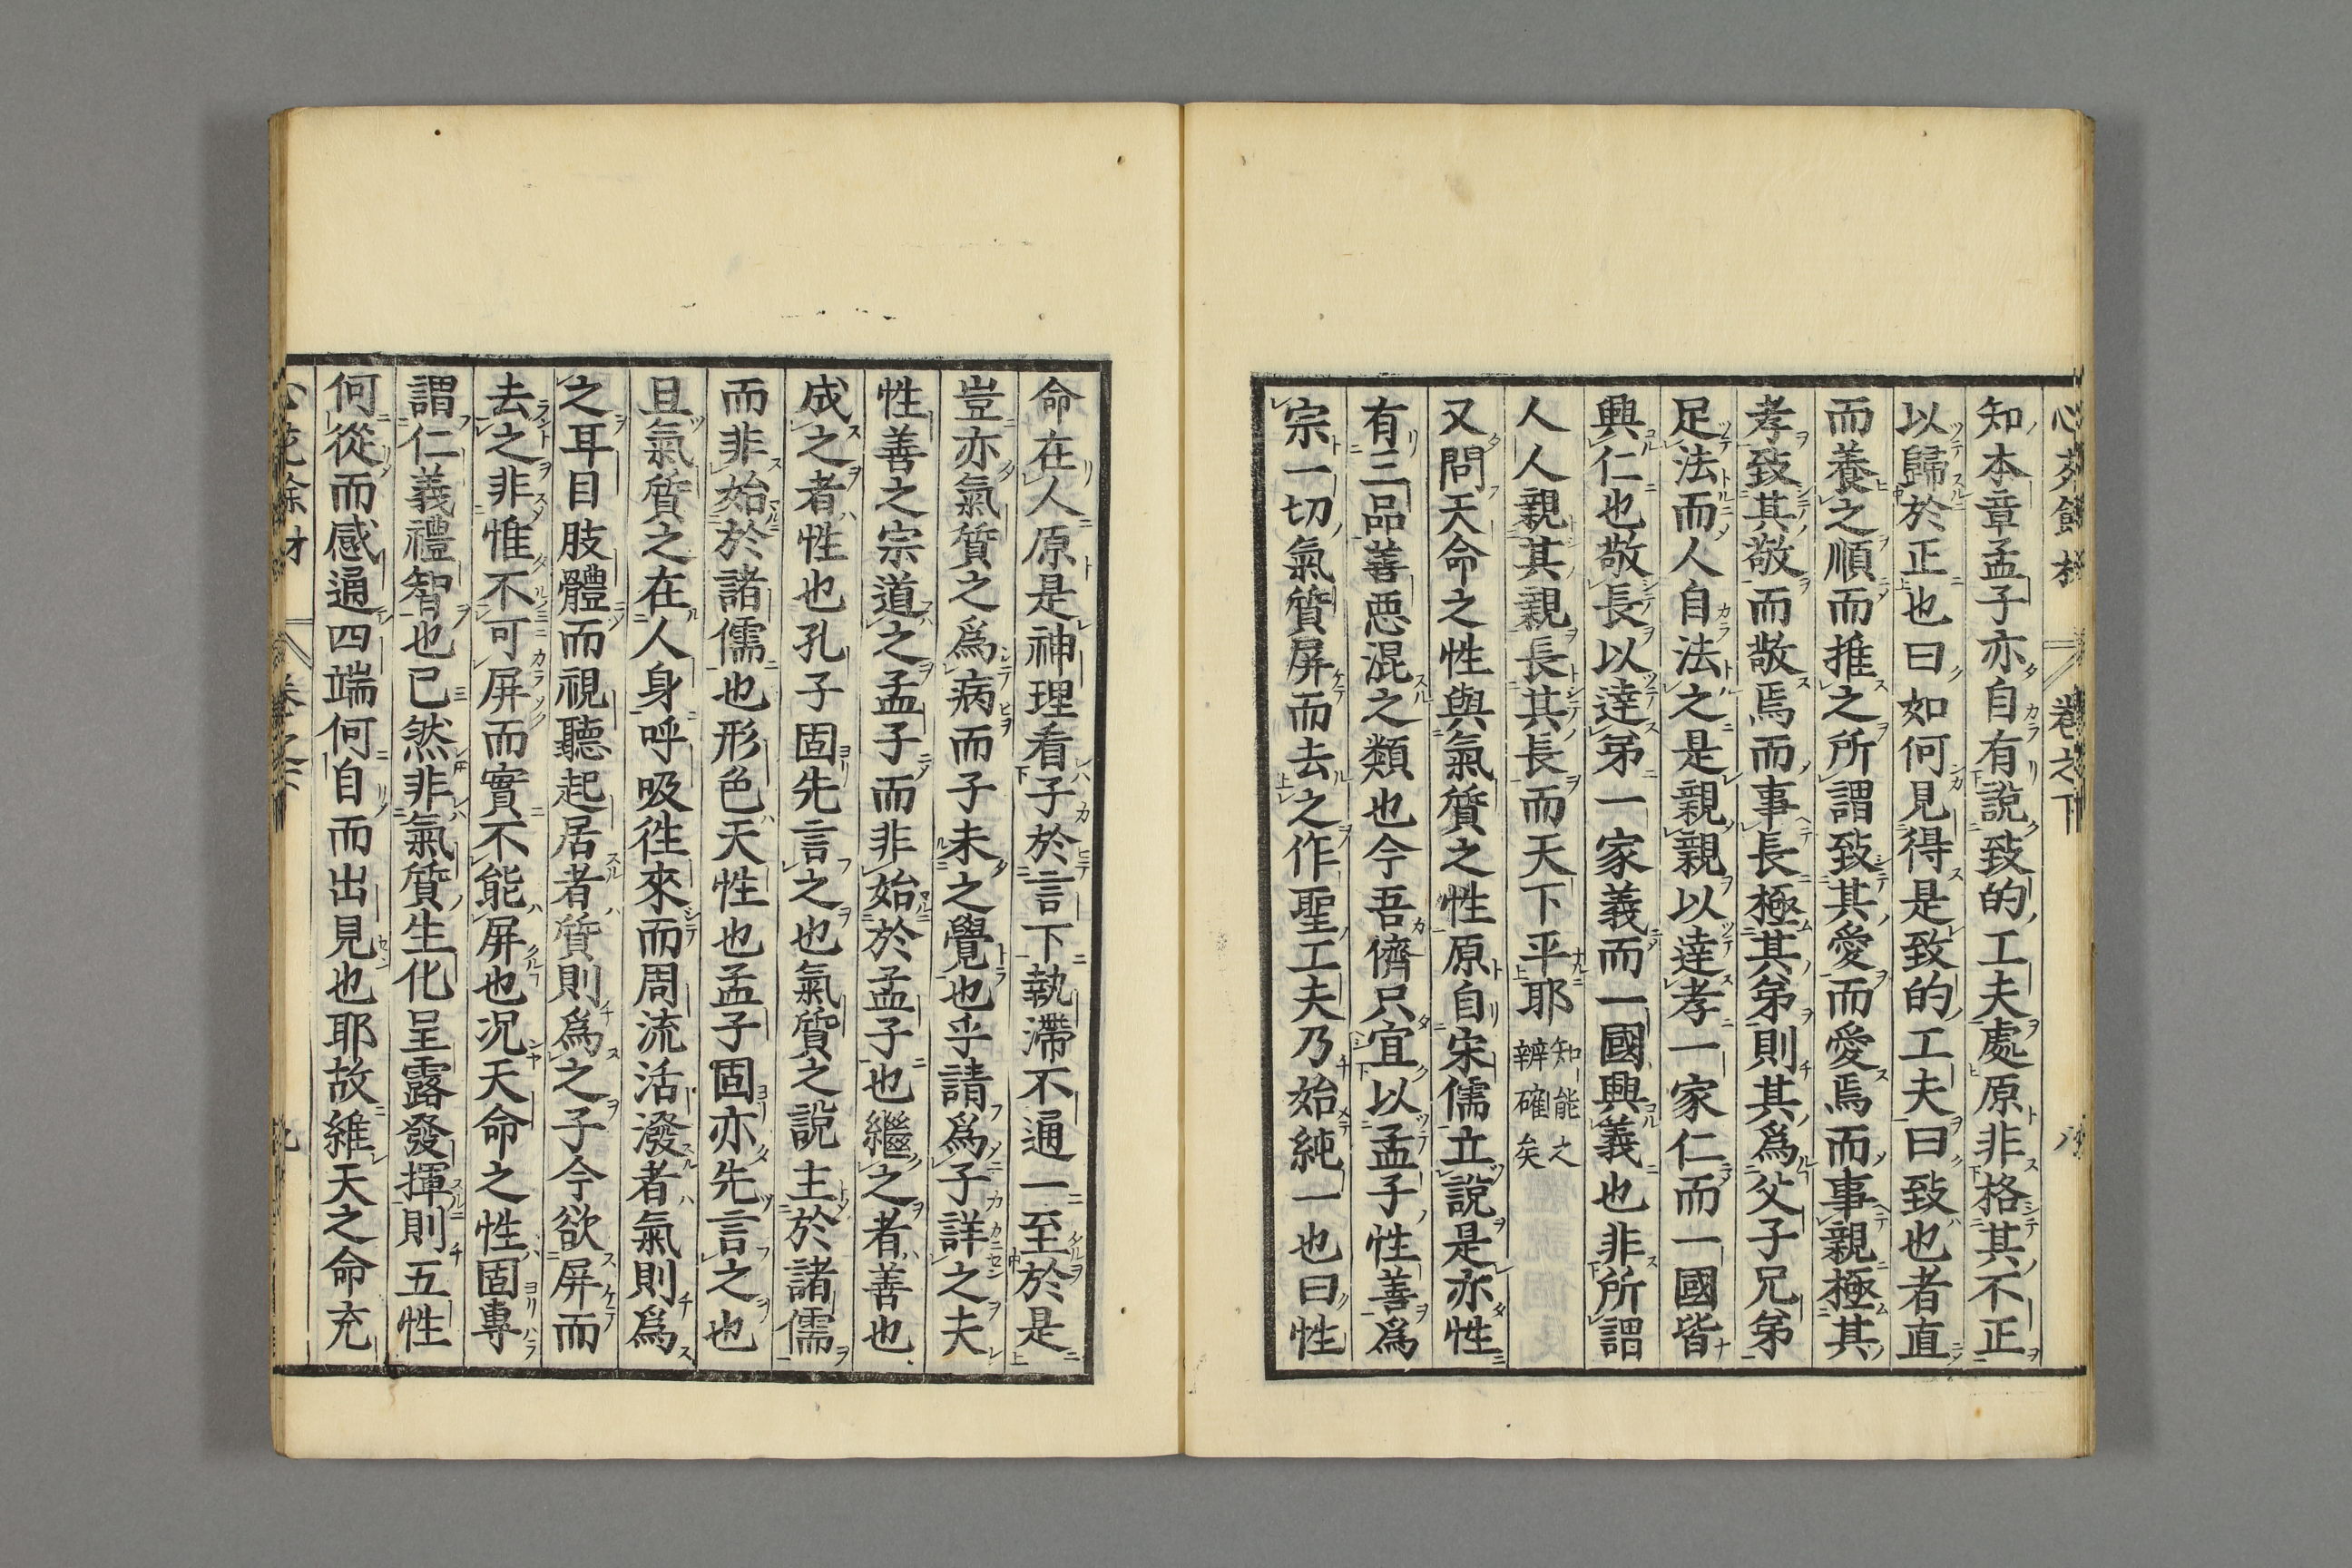 知本章孟子亦自有說致的工夫處原非格其不正
以歸於正也曰如何見得是致的工夫曰致也者直
而養之順而推之所謂致其愛而愛焉而事親極其
孝致其敬而敬焉而事長極其弟則其爲父子兄弟
足法而人自法之是親親以達孝一家仁而一國皆
興仁也敬長以達弟一家義而一國興義也非所謂
人人親其親長其長而天下平耶知能之辨確矣
又問天命之性與氣質之性原自宋儒立說是亦性
有三品善惡混之類也今吾儕只宜以孟子性善爲
宗一切氣質屏而去之作聖工夫乃始純一也曰性
命在人原是神理看子於言下執滯不通一至於是
豈亦氣質之爲病而子未之覺也乎請爲子詳之夫
性善之宗道之孟子而非始於孟子也繼之者善也
成之者性也孔子固先言之也氣質之說主於諸儒
而非始於諸儒也形色天性也孟子固亦先言之也
且氣質之在人身呼吸徃來而周流活潑者氣則爲
之耳目肢體而視聽起居者質則爲之子今欲屏而
去之非惟不可屏而實不能屏也况天命之性固專
謂仁義禮智也已然非氣質生化呈露發揮則五性
何從而感通四端何自而出見也耶故維天之命充